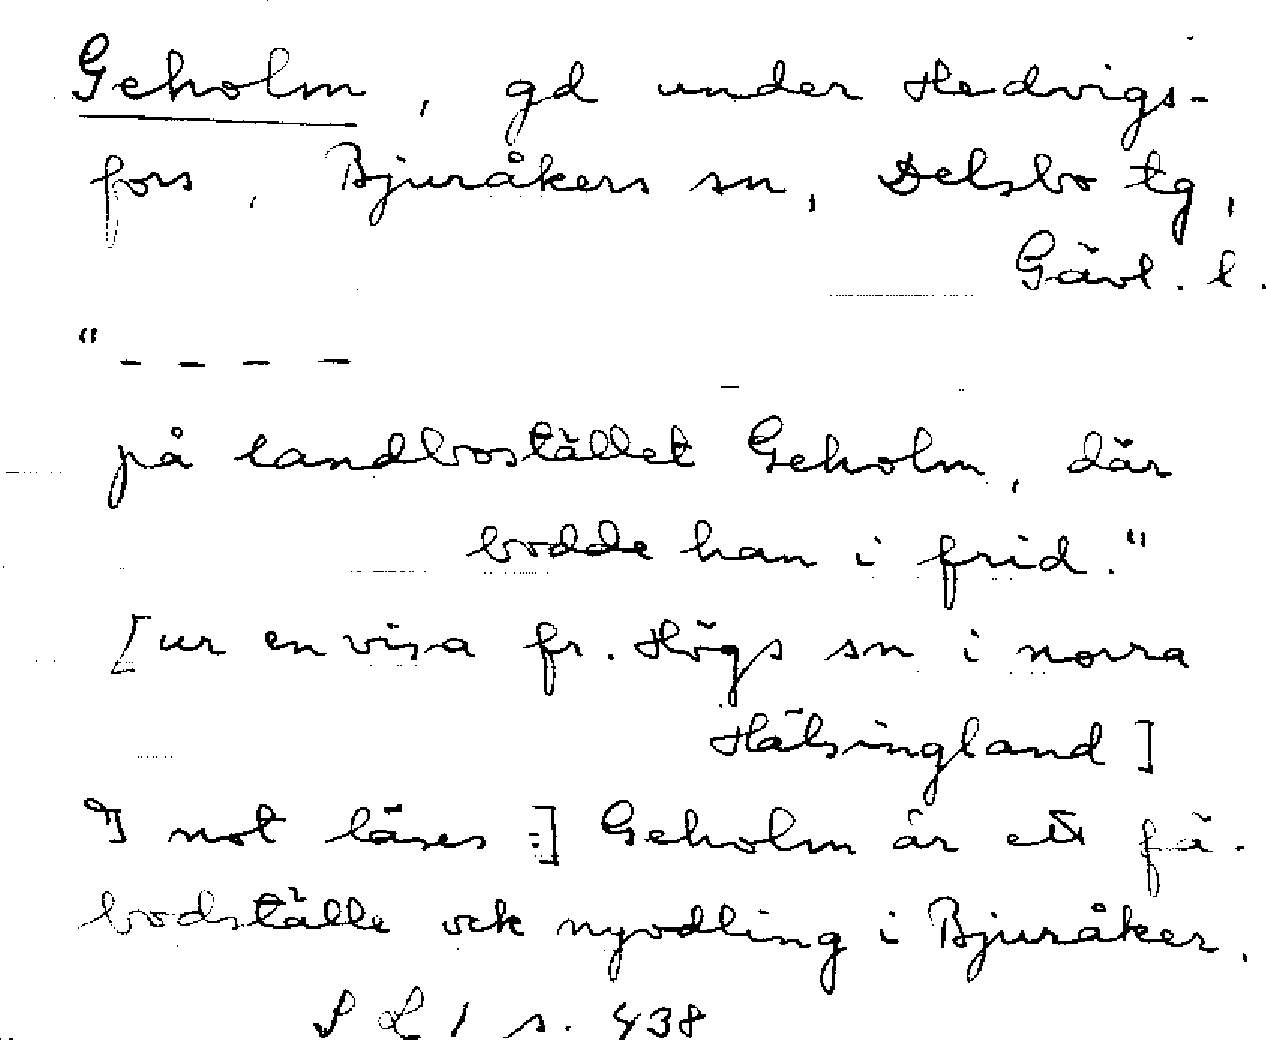 Geholm, gd under Hedvigs-
fors, Bjuråkers sn, Delsbo tg,
Gävl. l.
"- - - -
på landbostället Geholm, där
bodde han i frid."
[ur en visa fr. Högs sn i norra
Hälsingland]
I not läses :] Geholm är ett fä-
bodställe ock nyodling i Bjuråker.
S L 1 s. 438